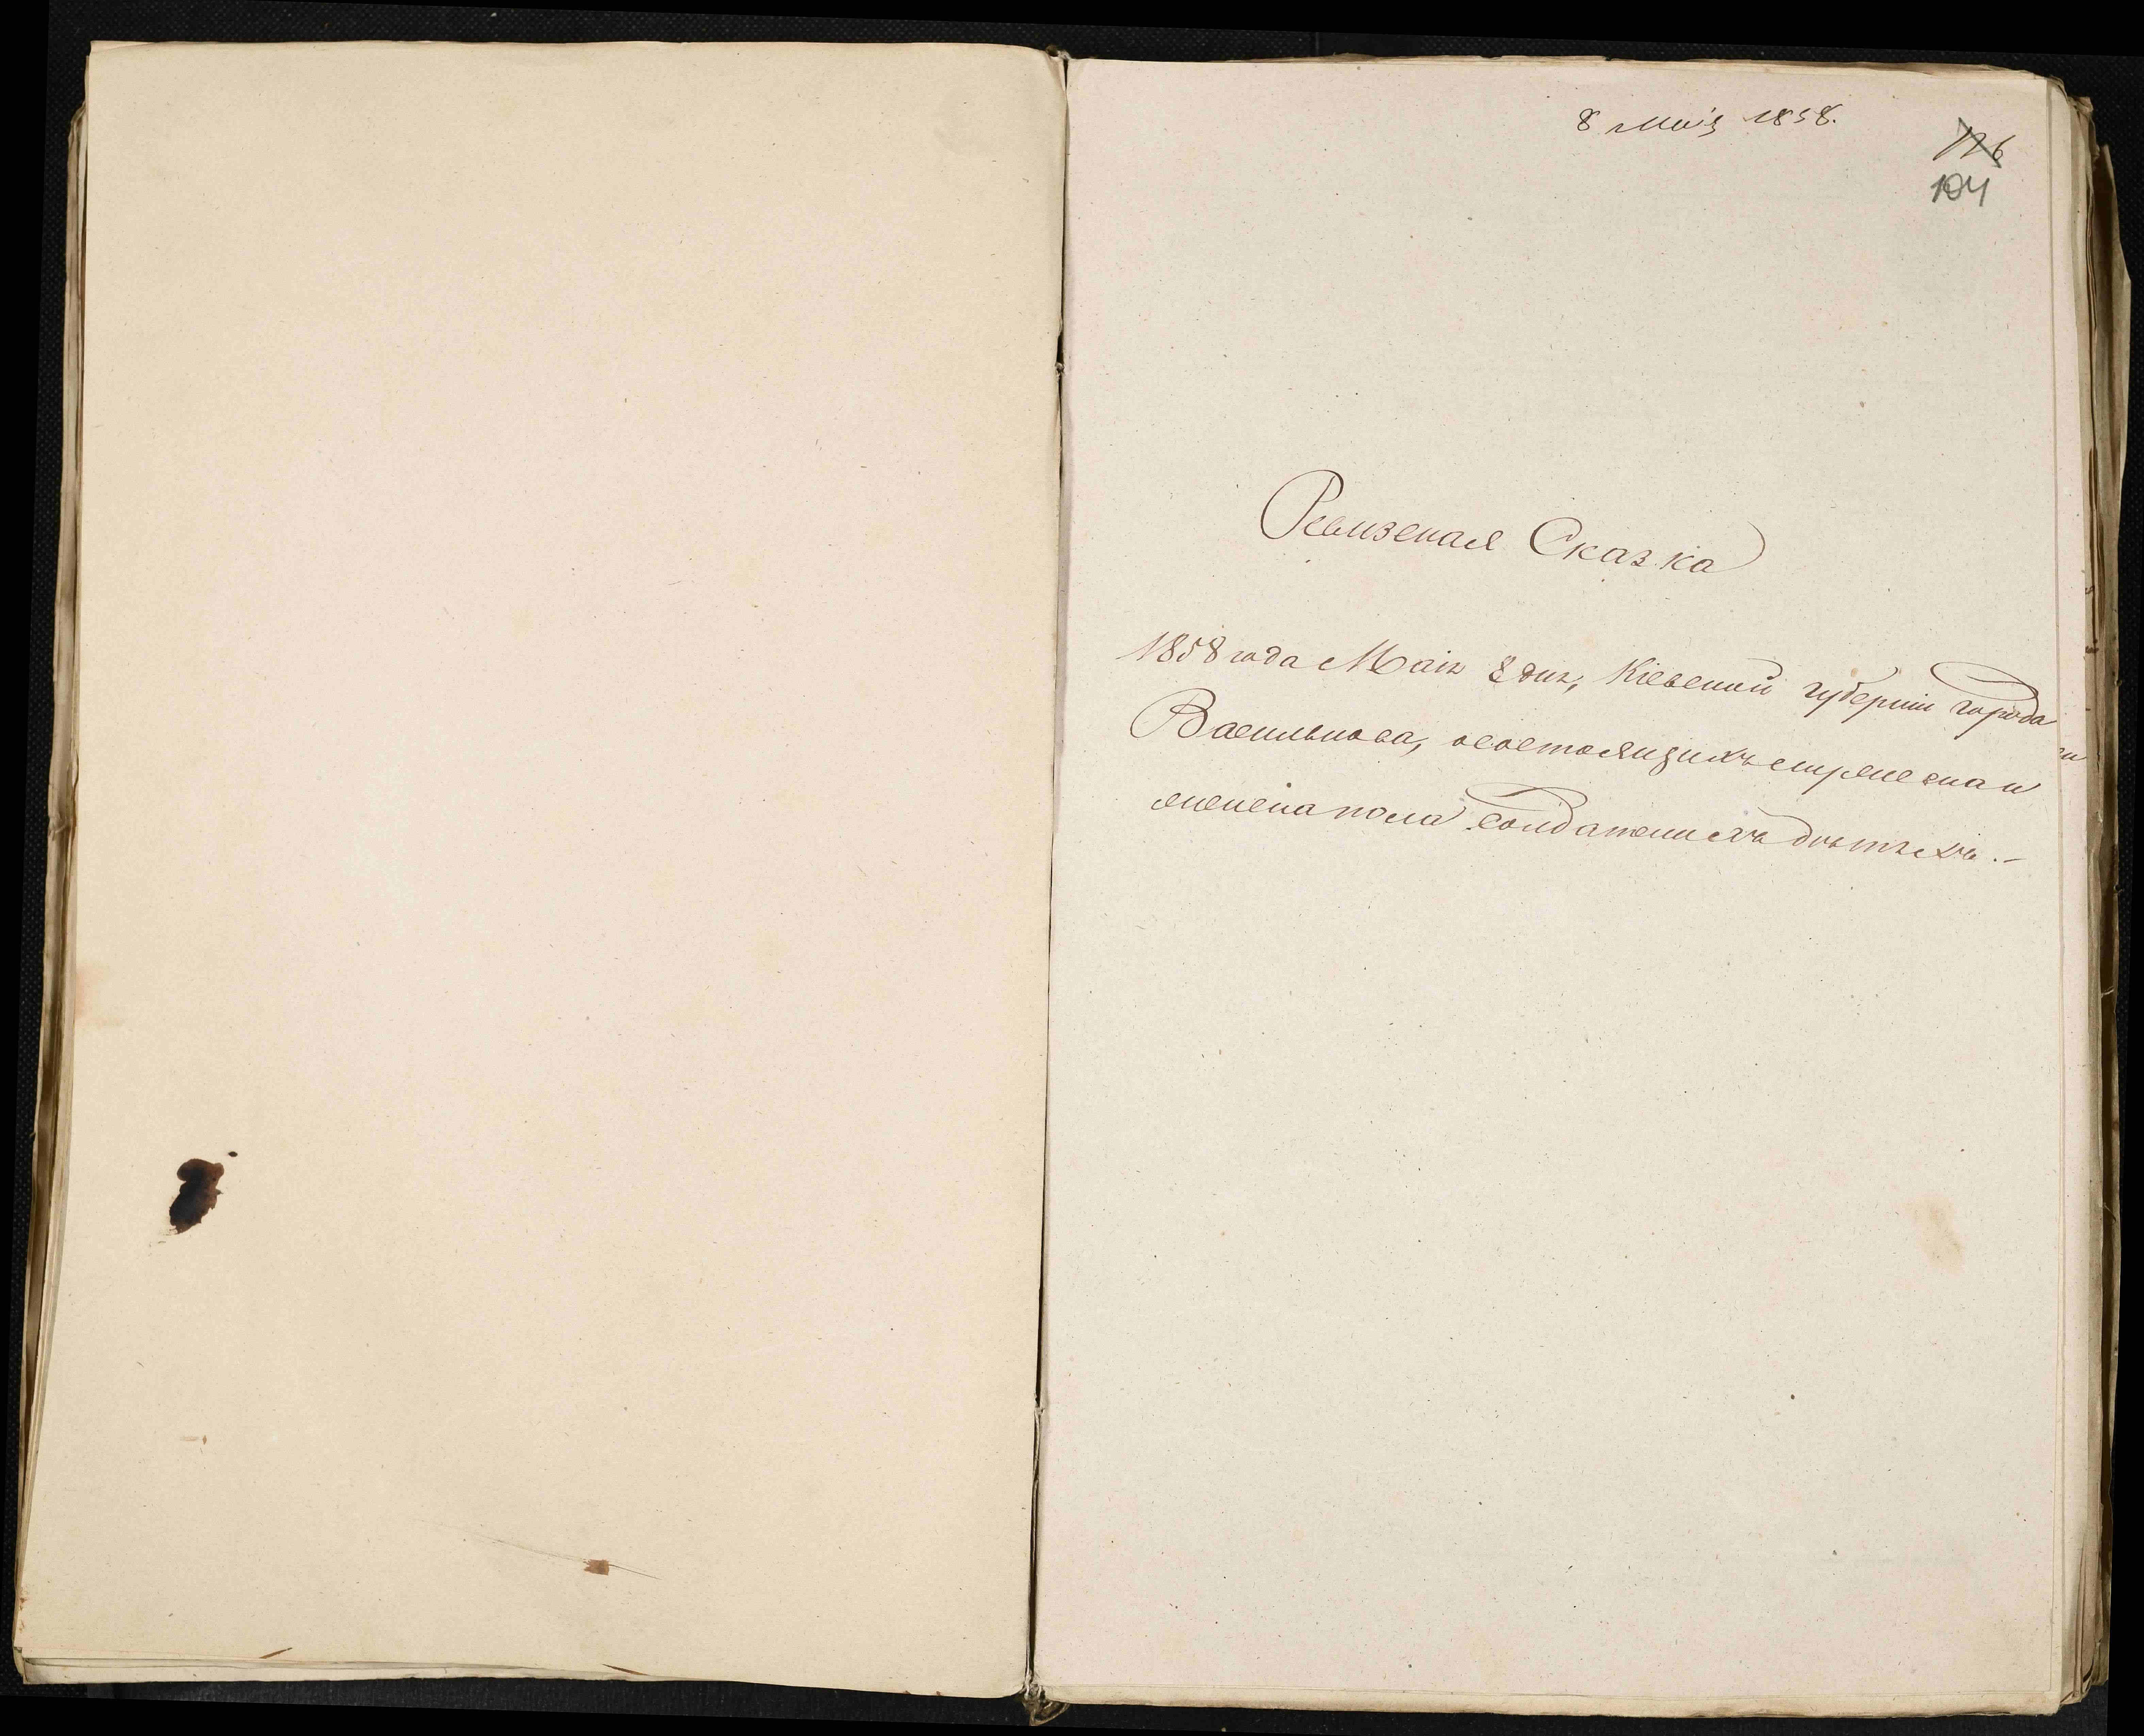 8 Мая 1858.
126
104
Ревизская Сказка
1858 года Маія 8 дня, Кіевской губерніи города
Василькова, о состоящихъ мужеска и
женска пола солдатскихъ дѣтяхъ.-